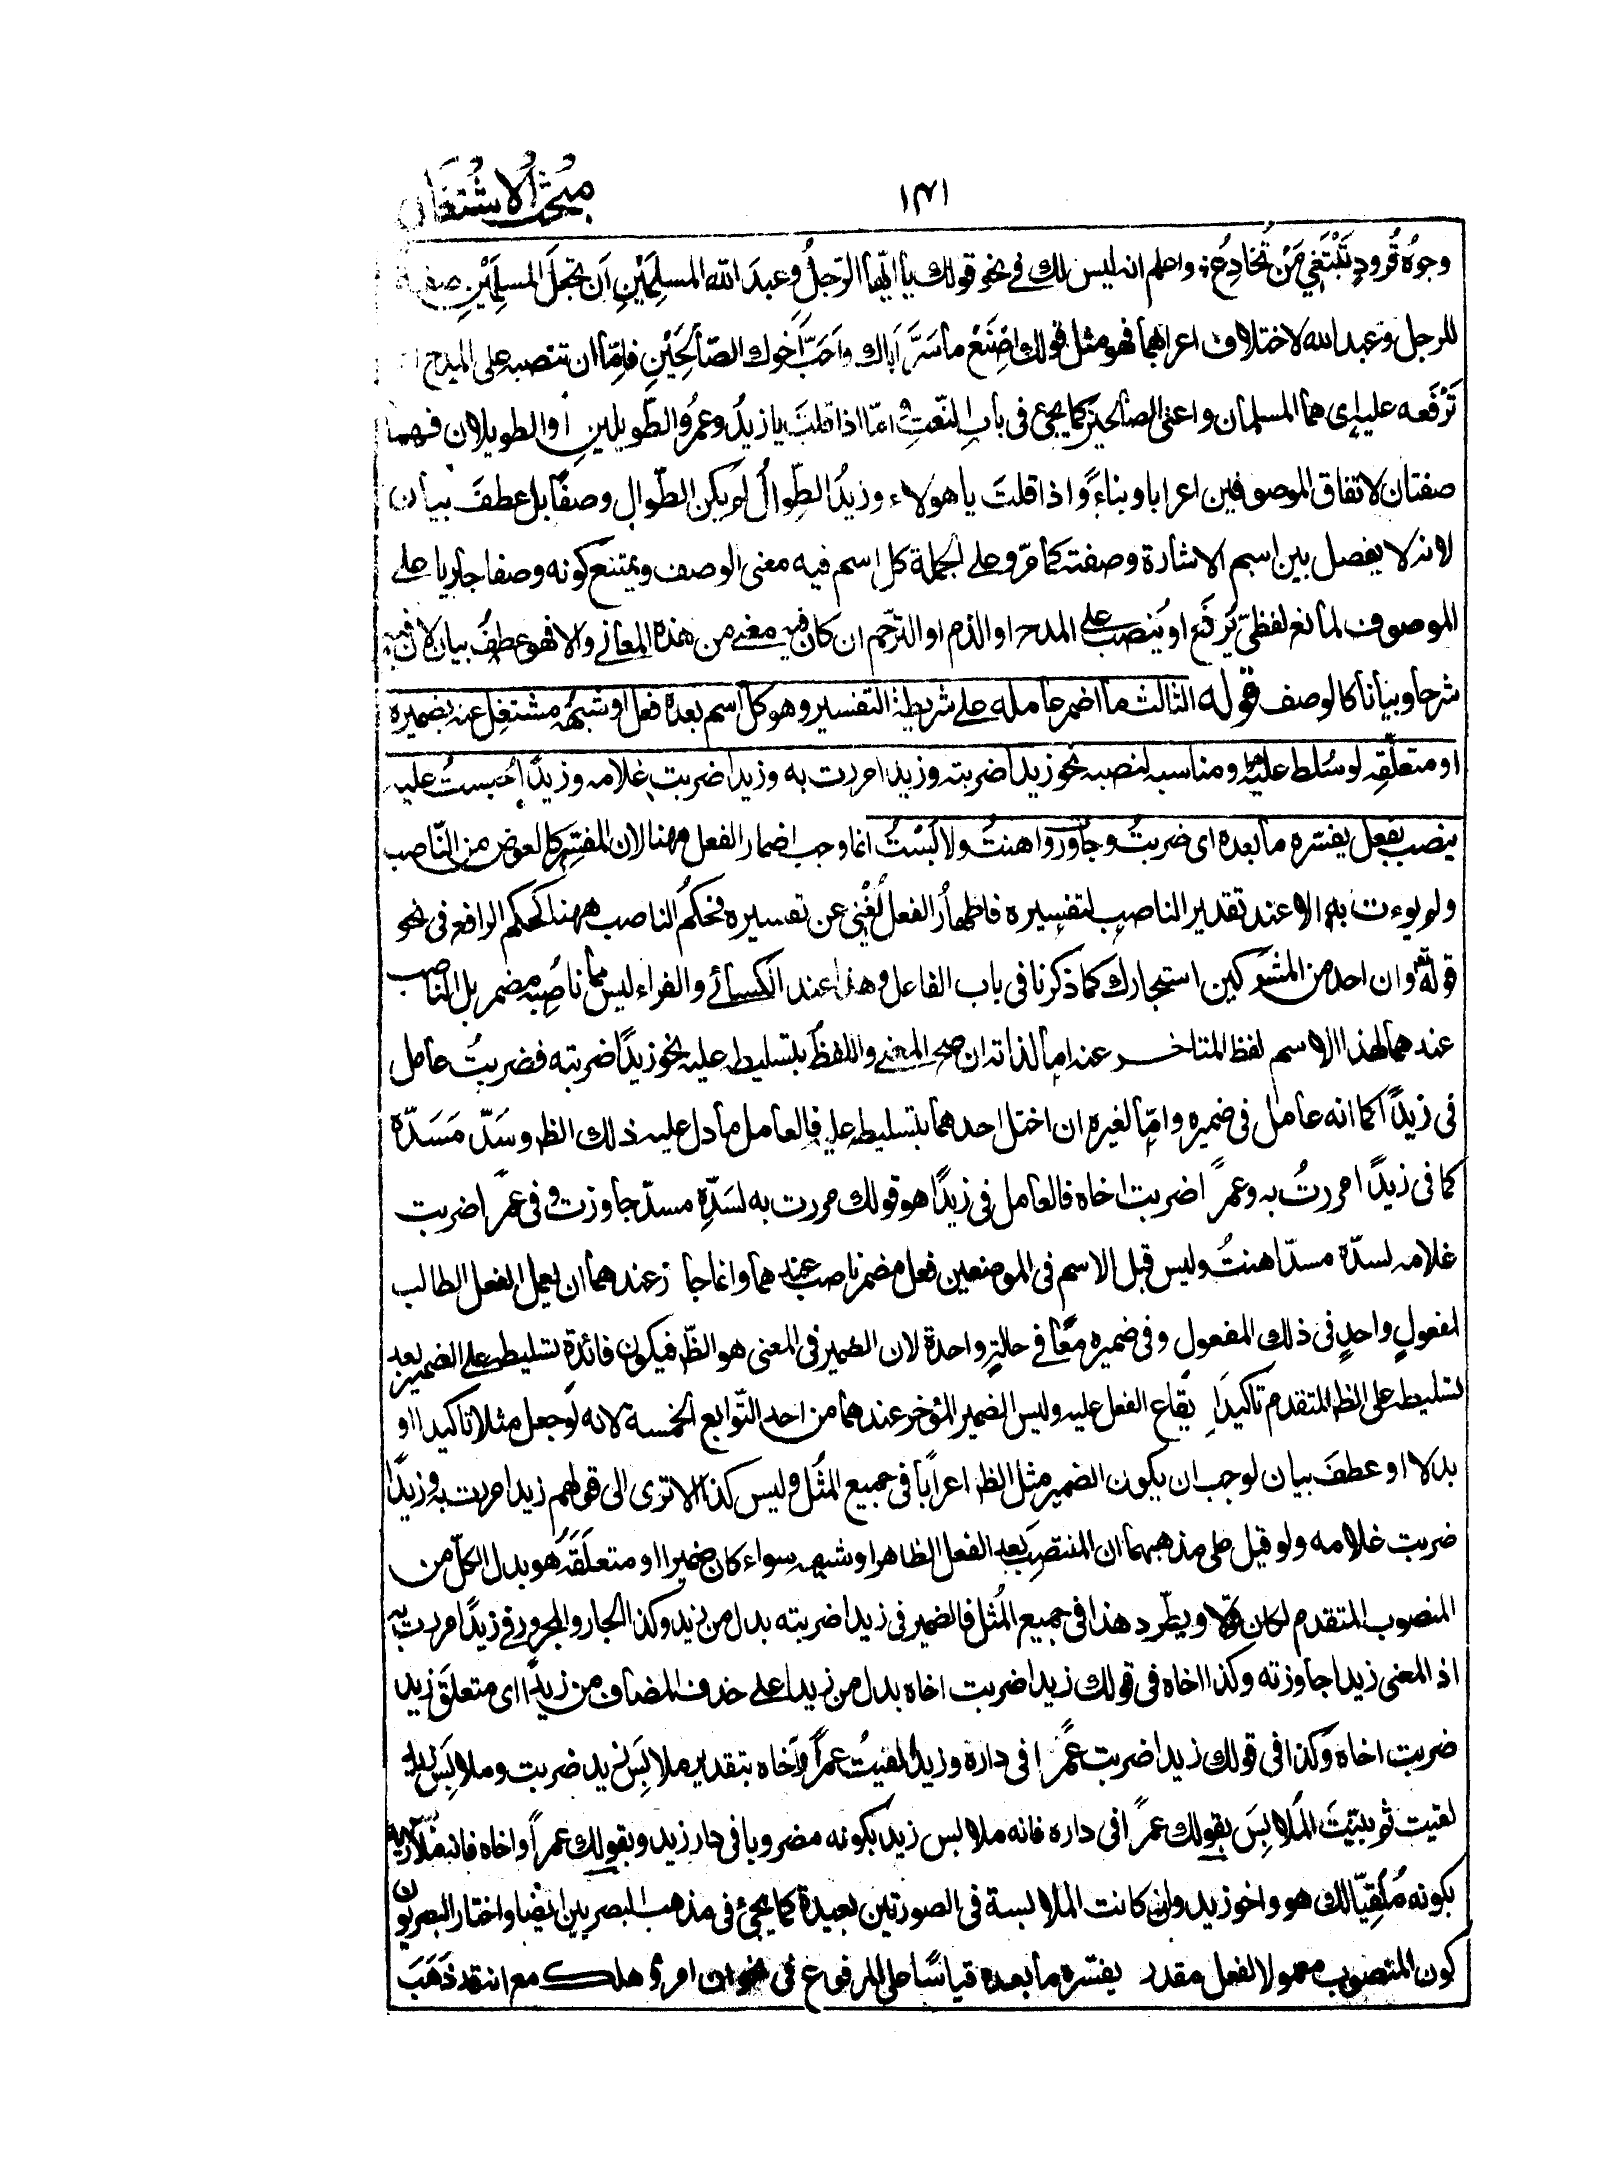 مبحث الاشتغال
١٤١
وجوهُ قُرودٍ تَبْتَغي مَن تُخادِعُ ؛ واعلم انه ليس لك في نحو قولك يا ايّها الرّجلُ وعبدَ الله المسلِمَيْنِ اَن تجعلَ المسلِمَيْنِ صفة
للرجل وعبد الله لاختلاف اعرابهما فهو مثل قولك اصْنَعْ ما سَرَّ اَباك واَحَبَّ اَخوك الصّالحَيْنِ فامّا ان تنصبه على المدح
تَرْفَعه عليه اى هما المسلمان واعنى الصالحين كما يجئ فى باب النّعتِ وامّا اذا قلتَ يا زيدُ وعمرُو الطّويلينِ اَو الطويلان فهما
صفتان لاتفاق الموصوفين اعرابا وبناءً واذا قلتَ يا هولاء وزيدُ الطِّوالُ لم يكن الطّوال وصفًا بل عطفَ بيان
لانه لا يفصل بين اسم الاشارة وصفته كما مرّ وعلى الجملة كل اسم فيه معنى الوصف ويمتنع كونه وصفا جاريا على
الموصوف لمانع لفظىّ يُرفَع او يُنصب على المدح او الذم او الترّحم ان كان فيه معنى من هذه المعانى والا فهو عطفُ بيان لان فيه
شرحا وبيانا كالوصف قوله الثالث ما اضمر عامله على شريطة التفسير وهو كل اسم بعده فعل او شبهُه مشتغل عنه بضميره
او متعلّقِه لو سُلط عليه هو او مناسبه لنصبه نحو زيدا ضربته وزيدا مررت به وزيدا ضربت غلامه وزيدًا حُبستُ عليه
ينصب بفعل يفسّره ما بعده اى ضربتُ وجاوزت واهنتُ ولابَسْتُ انما وجب اضمار الفعل ههنا لان المفسّر كالعوض من النّاصب
ولم يوءت به الا عند تقدير الناصب لتفسيره فاظهارُ الفعل يُغْنى عن تفسيره فحكم الناصب ههنا كحكم الرافع فى نحو
قوله تعه وان احد من المشركين استجارك كما ذكرنا فى باب الفاعل وهذا عند الكسائى والفراء ليس مما ناصِبه مضمر بل الناصب
عندهما لهذا الاسم لفظ المتاخر عنه اما لذاته ان صح المعنى واللفظُ بتسليطه عليه نحو زيدًا ضربته فضربتُ عامل
فى زيدًا كما انه عامل فى ضميره وامّا لغيره ان اختل احدهما بتسليطه عليه فالعامل ما دل عليه ذلك الظ وسَدّ مَسَدّه
كما فى زيدًا مررتُ به وعمرًا ضربت اخاه فالعامل فى زيدًا هو قولك مررت به لسَدِّه مسدّ جاوزت وفى عمرًا ضربت
غلامه لسدّه مسدّ اهنتُ وليس قبل الاسم فى الموضعين فعل مضمر ناصب عندهما وانما جاز عندهما ان يعمل الفعل الطالب
لمفعولٍ واحدٍ فى ذلك المفعول وفى ضميره معًا فى حالةٍ واحدة لان الضمير فى المعنى هو الظّ فيكون فائدة تسليطه على الضمير بعد
تسليطه على الظ المتقدم تاكيدَ اِيقاع الفعل عليه وليس الضمير المؤخر عندهما من احد التّوابع الخمسة لانه لو جعل مثلا تاكيدا او
بدلا او عطفَ بيان لوجب ان يكون الضمير مثل الظ اعرابًا فى جميع المُثُل وليس كذا الا ترى الى قولهم زيدا مررت به وزيدًا
ضربت غلامه ولو قيل على مذهبهما ان المنتصِب بعد الفعل الظاهر او شبهه سواء كان ضميرا او متعلَقَه هو بدل الكلّ من
المنصوب المتقدم لكان قولا ويطّرد هذا فى جميع المُثُل فالضمير فى زيدا ضربته بدل من زيد وكذا الجار والمجرور فى زيدًا مررت به
اذ المعنى زيدا جاوزته وكذا اخاه فى قولك زيدا ضربت اخاه بدل من زيدا على حذف المضاف من زيدًا اى متعلقَ زيد
ضربت اخاه وكذا فى قولك زيدا ضربت عمرًا فى داره وزيدًا لقيتُ عمرًا واَخاه بتقدير ملابِسَ زيد ضربت وملابِسَ زيد
لقيت ثم بيّنتَ المُلابِسَ بقولك عمرًا فى داره فانه ملابس زيد بكونه مضروبا فى دار زيد وبقولك عمرًا واخاه فانه ملابسه
بكونه مُلْقِيًا لك هو واخو زيد وان كانت الملابسة فى الصورتين بعيدة كما يجئ فى مذهب البصريين ايضا واختار البصريون
كون المنصوب معمولا لفعل مقدر يفسّره ما بعده قياسًا على المرفوع فى نحو ان امرؤ هلك مع انه قد ذَهَبَ